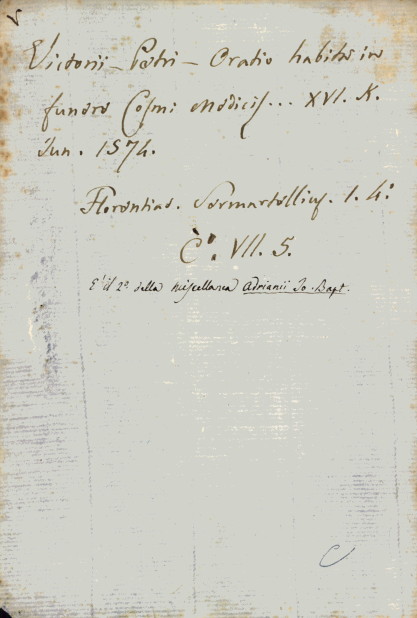 Victorii - Petri - Oratio habita in
funere Cosmi Medicis... XVI. K.
Jun. 1574.
Florentiae. Sermartellius. 1. 4º
Cº. VII. 5.
E' il 2º della miscellanea Adrianii Jo. Bapt.